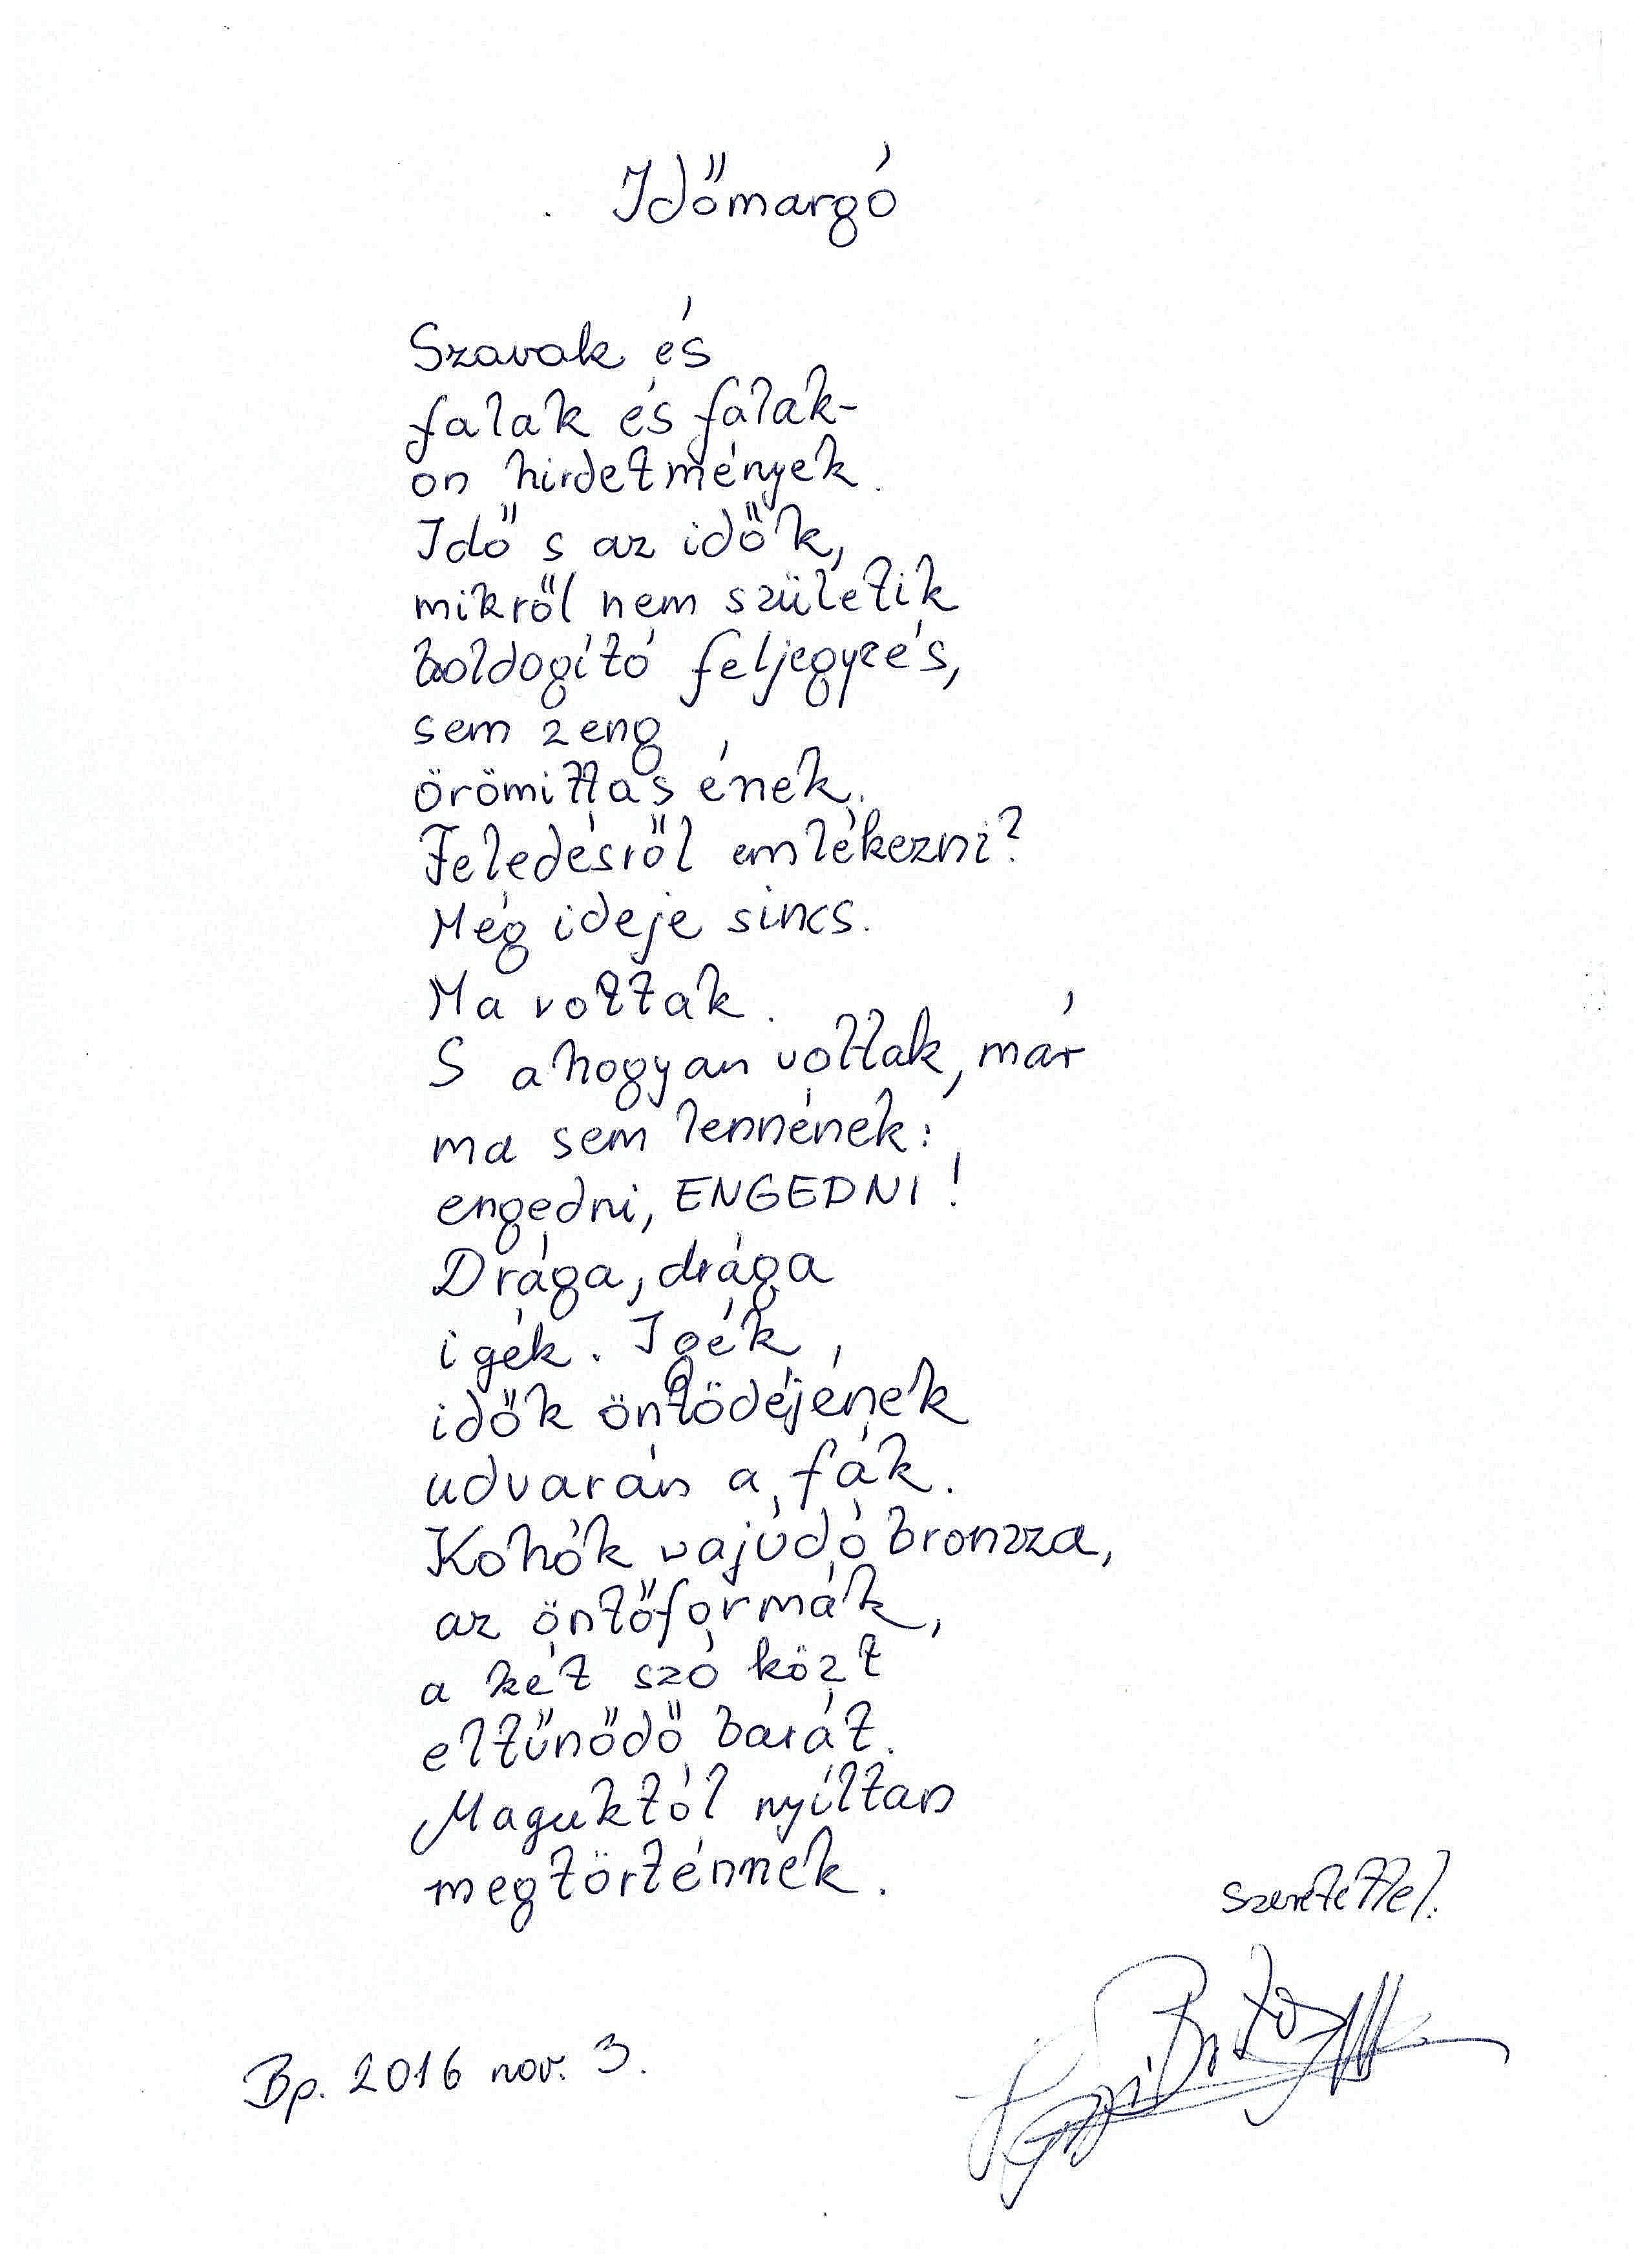 Időmargó
Szavak és
falak és falak-
on hirdetmények.
Idő s az idők,
mikről nem születik
boldogító feljegyzés,
sem zeng
örömittas ének.
Feledésről emlékezni?
Még ideje sincs.
Ma voltak.
S ahogyan voltak, már
ma sem lennének:
engedni, ENGEDNI!
Drága, drága
igék. Igék,
idők öntödéjének
udvarán a fák.
Kohók vajúdó bronzza,
az öntőformák,
a két szó közt
eltűnődő barát.
Maguktól nyíltan
megtörténnek.
szeretettel:
Bp. 2016 nov. 3.